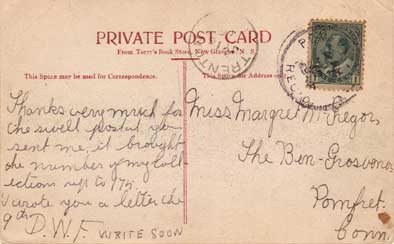 PRIVATE POST CARD
From Torry's Book Store, New Glasgow, N. S.
This Space may be used for Correspondence.
This Space for Address only
TRENTON
REC'D
Thanks very much for
the swell postal you
sent me, it brought
the number of my coll-
ections up to 175.
I wrote you a letter the
9th D.W.F. WRITE SOON
Miss Margret McGregor,
The Ben-Grosvenor
Pomfret.
Conn.